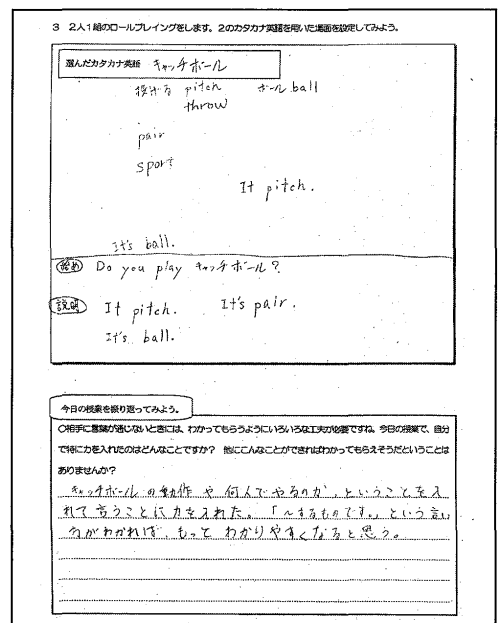 3 2人1組のロールプレイングをします。2のカタカナ英語を用いた場面を設定してみよう。
選んだカタカナ英語 キャッチボール
投げる pitch ボール ball
throw
pair
sport
It pitch.
It's ball.
始め Do you play キャッチボール?
説明 It pitch. It's pair.
It's ball.
今日の授業を振り返ってみよう。
○相手に言葉が通じないときには、わかってもらうようにいろいろな工夫が必要ですね。今日の授業で、自分
で特に力を入れたのはどんなことですか? 他にこんなことができればわかってもらえそうだということは
ありませんか?
キャッチボールの動作や何人でやるのか、ということを入
れて言うことに力を入れた。「〜するものです。」という言い
方がわかれば、もっとわかりやすくなると思う。